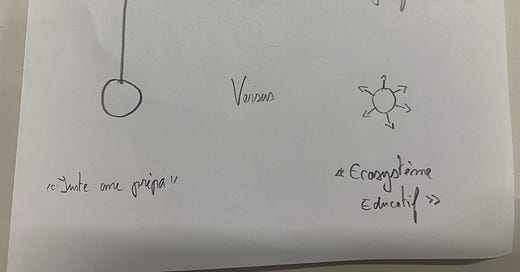 Versus
« Juste une prépa »
« Ecosystème
Educatif »